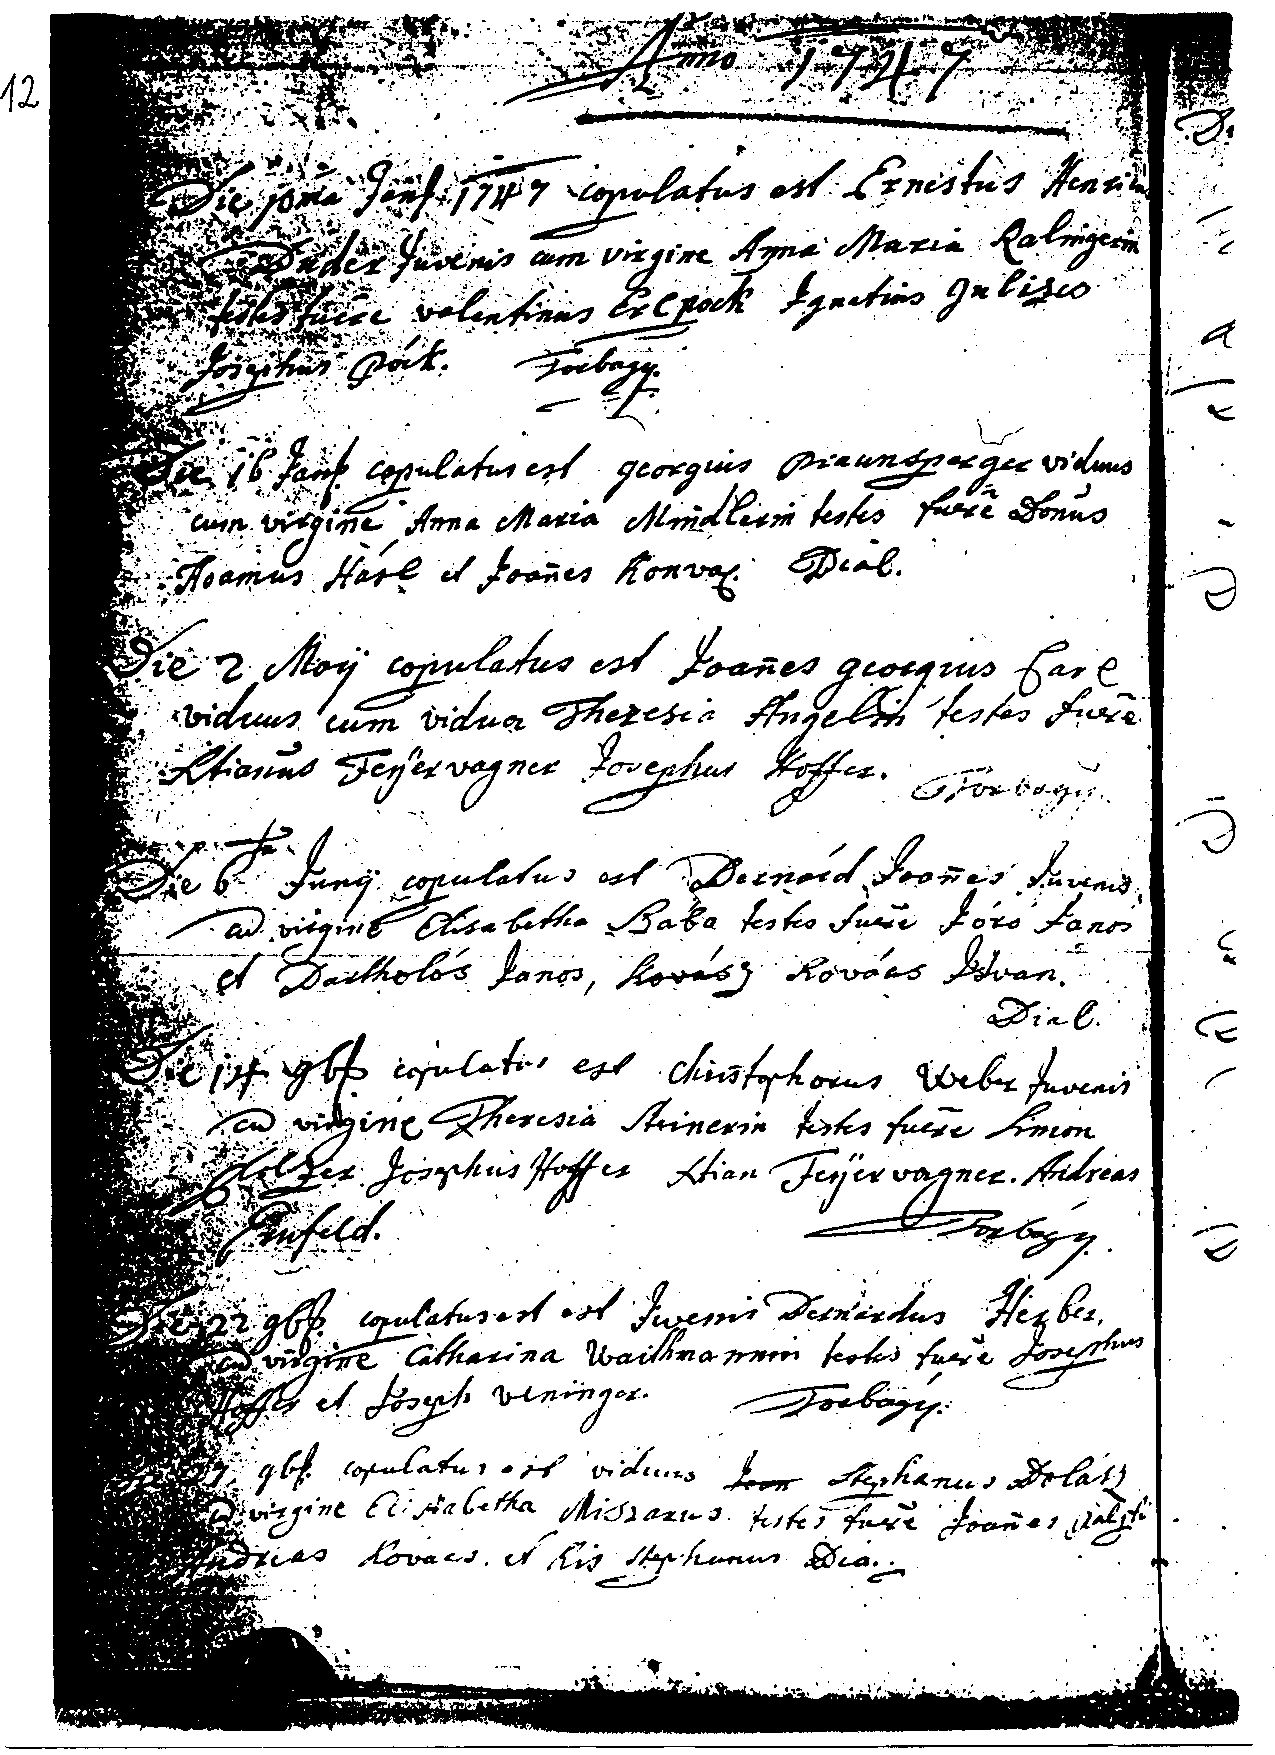 12
Anno 1747
Die 10ma Janr 1747 copulatus est Ernestus Henricus
Juvenis cum virgine Anna Maria Ralingerin
testes fuere valentinus Ignatius
Josephus Pöck. Torbagy.
Die 16 Janr copulatus est georgius Praunsperger viduus
cum virgine Anna Maria Mindlerin testes fuere Donus
Adamus Hásl et Joañes Konvax. Dial.
Die 2 Maÿ copulatus est Joañes georgius
viduus cum vidua Theresia testes fuere
Xtianus Feÿervagner Josephus Hoffer. Torbagÿ.
Die 6ta Junÿ copulatus est Bernárd Joañes Juvenis
cū virgine Elisabetha Baba testes fuere Jóró Janos
et Bartholós Janos, Kovács Istvan.
Dial.
Die 14 9bris copulatus est Christophorus Weber Juvenis
cū virgine Theresia Steinerin testes fuere Simon
Holzer Josephus Hoffer Xtian Feÿervagner. Andreas
Grufeld. Torbagÿ.
Die 22 9bris copulatus est est Juvenis Bernardus Herber,
cū virgine Catharina Waithmannin testes fuere Josephus
Hoffer et Joseph Veninger. Torbagÿ.
27 9bris copulatus est viduus Joan Stephanus Dolász
cū virgine Elisabetha Miszarus testes fuere Joañes
Andreas Kovacs et Kis Stephanus Dia.